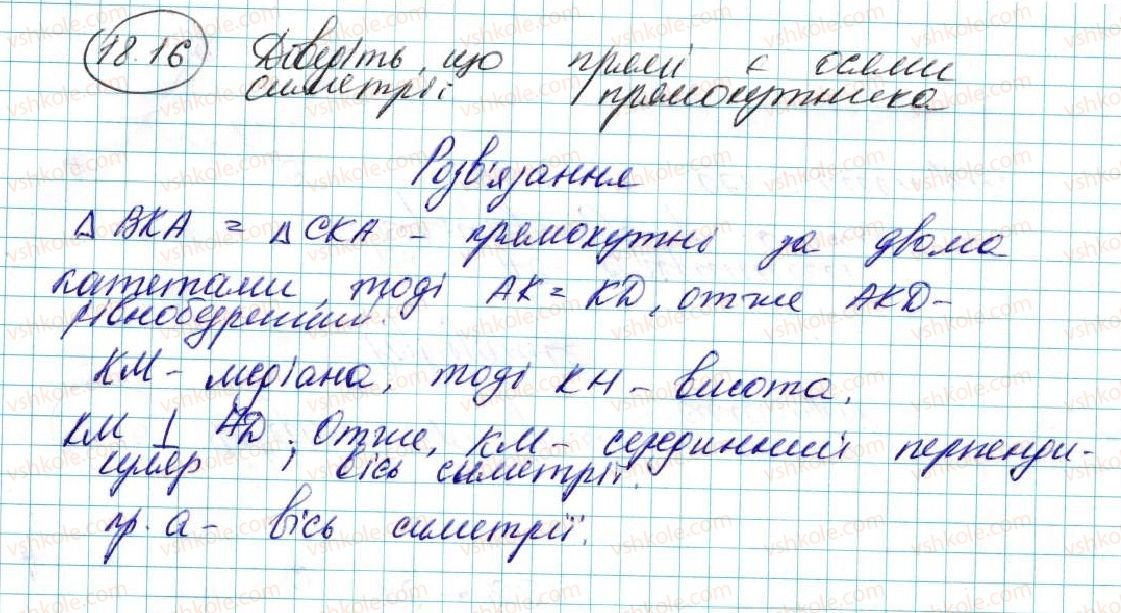 18.16 Доведіть, що прямі є осями
симетрії прямокутника
Розв'язання
Δ BKA = Δ CKA - прямокутні за двома
катетами, тоді AK = KD, отже AKD -
рівнобедрений.
KM - медіана, тоді KH - висота.
KM ⊥ AD. Отже, KM - серединний перпенди-
куляр і вісь симетрії.
пр. a - вісь симетрії.